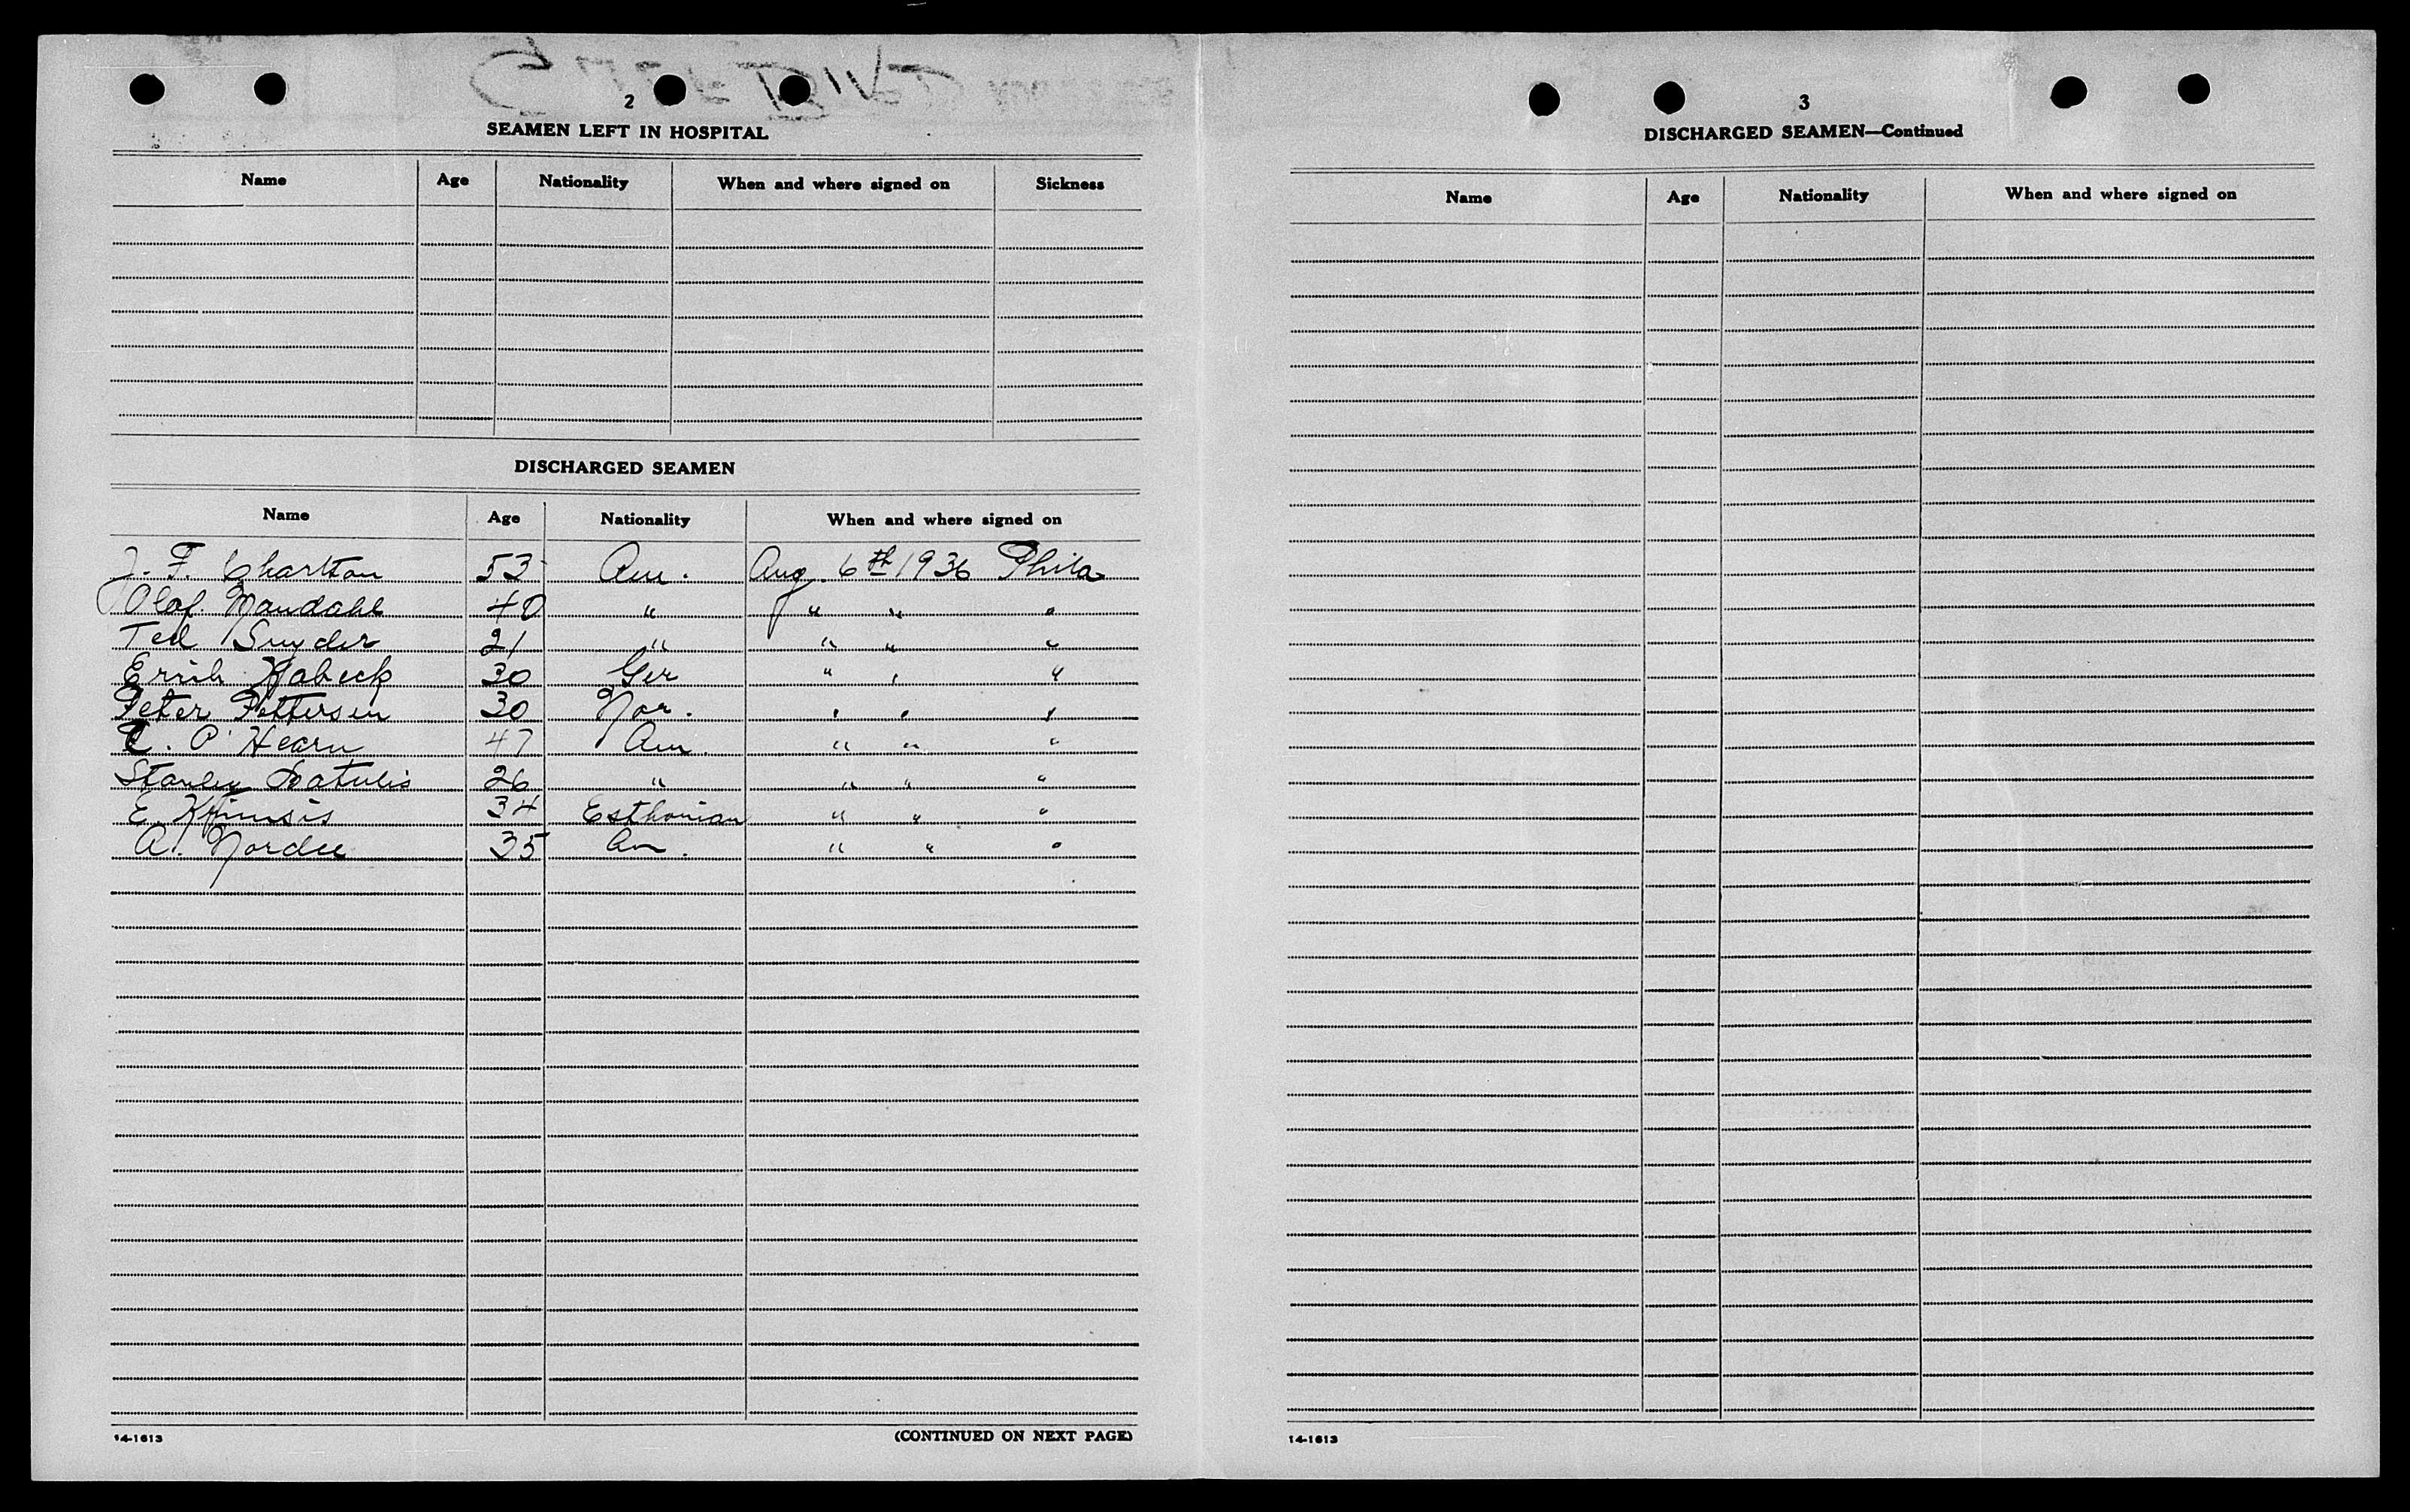 2
SEAMEN LEFT IN HOSPITAL
Name Age Nationality When and where signed on Sickness
DISCHARGED SEAMEN
Name Age Nationality When and where signed on
J. F. Charlton 53 Am. Aug. 6th 1936 Phila
Olaf Mandahl 40 " " " "
Ted Snyder 21 " " " "
Erich Habeck 30 Ger " " "
Peter Pettersen 30 Nor. " " "
E. P. Hearn 47 Am. " " "
Stanley 26 " " " "
E. 34 Esthonian " " "
A. 35 Am. " " "
14-1613
(CONTINUED ON NEXT PAGE)
3
DISCHARGED SEAMEN—Continued
Name Age Nationality When and where signed on
14-1613